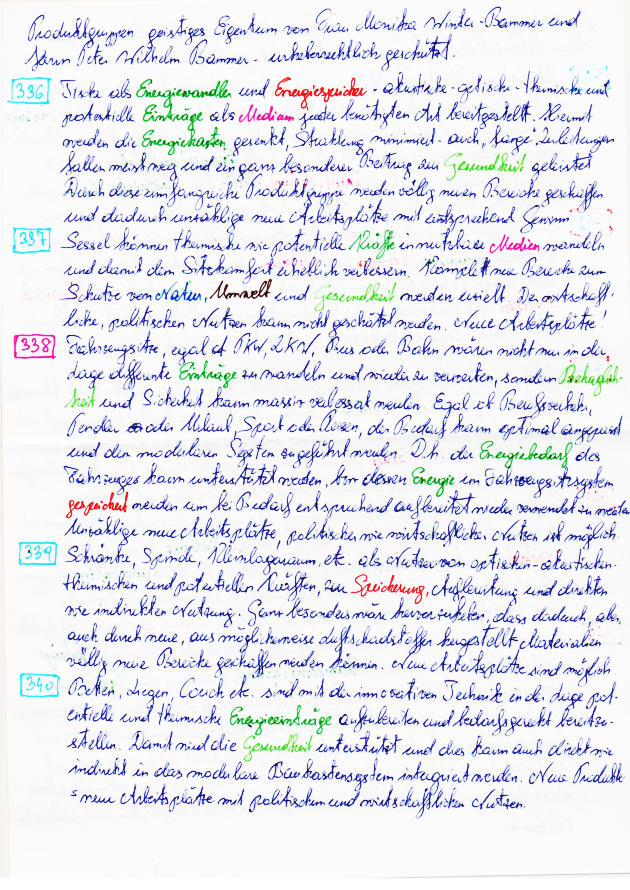 Produktgruppen geistiges Eigentum von Frau Monika Winter-Bammer und
Herrn Peter Wilhelm Bammer - urheberrechtlich geschützt.
336 Tische als Energiewandler und Energiespeicher - akustische - optische - thermische und
potentielle Einträge als Medium jeder benötigten Art bereitgestellt. Hiermit
werden die Energiekosten gesenkt, Strahlung minimiert - auch "lange" Zuleitungen
fallen meist weg und ein ganz besonderer Beitrag zur Gesundheit geleistet
Durch diese umfangreiche Produktgruppe werden völlig neue Bereiche geschaffen
und dadurch unzählige neue Arbeitsplätze mit entsprechend Gewinn
337 Sessel können thermische wie potentielle Kräfte in nutzbare Medien wandeln
und damit den Sitzkomfort erheblich verbessern. Komplett neue Bereiche zum
Schutze von Natur, Umwelt und Gesundheit werden erzielt. Der wirtschaft-
liche, politischen Nutzen kann nicht geschätzt werden. Neue Arbeitsplätze!
338 Fahrzeugsitze, egal ob PKW, LKW, Bus oder Bahn wären nicht nur in der
Lage differente Einträge zu wandeln und wieder zu verwerten, sondern Behaglich-
keit und Sicherheit kann massiv verbessert werden. Egal ob Berufsverkehr,
Pendler oder Urlaub, Sport oder Reisen, der Bedarf kann optimal angepasst
und den modularen System zugeführt werden. D.h. der Energiebedarf des
Fahrzeuges kann unterstützt werden, bzw dessen Energie im Fahrzeugsitzsystem
gespeichert werden um bei Bedarf entsprechend aufbereitet wieder verwendet zu werden
Unzählige neue Arbeitsplätze, politischer wie wirtschaftlicher Nutzen ist möglich.
339 Schränke, Spinde, Kleinlagerraum, etc. als Nutzer von optischen - akustischen -
thermischen und potentiellen Kräften, zur Speicherung, Aufbereitung und direkten
wie indirekten Nutzung. Ganz besonders wäre hervorzuheben, dass dadurch, aber
auch durch neue, aus möglicherweise Luftschadstoffen hergestellt Materialien
völlig neue Bereiche geschaffen werden können. Neue Arbeitsplätze sind möglich.
340 Betten, Liegen, Couch etc. sind mit der innovativen Technik in der Lage pot-
entielle und thermische Energieeinträge aufzubereiten und bedarfsgerecht bereitzu-
stellen. Damit wird die Gesundheit unterstützt und dies kann auch direkt wie
indirekt in das modulare Baukastensystem integriert werden. Neue Produkte
= neue Arbeitsplätze mit politischen und wirtschaftlichen Nutzen.